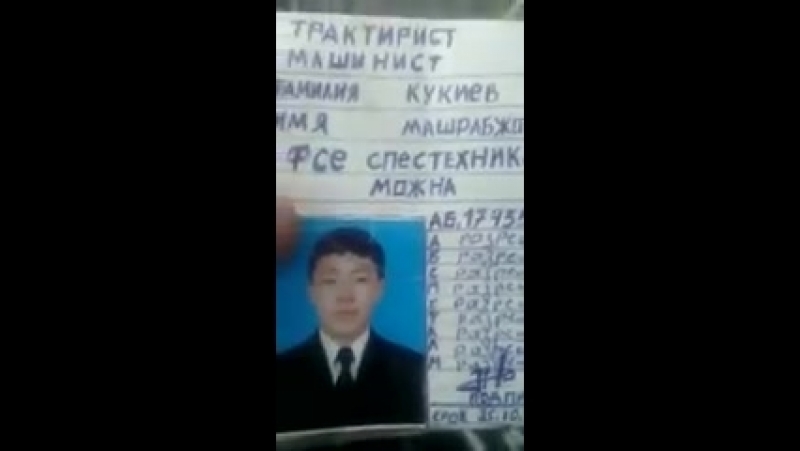 ТРАКТИРИСТ
МАШИНИСТ
ФАМИЛИЯ КУКИЕВ
ИМЯ МАШРАБЖО
ФСЕ СПЕСТЕХНИК
МОЖНА
АБ.1793
А разре
В разре
С разре
разре
Е разре
разре
А разре
Л разре
М разре
ПОДПИ
СРОК 25.10.